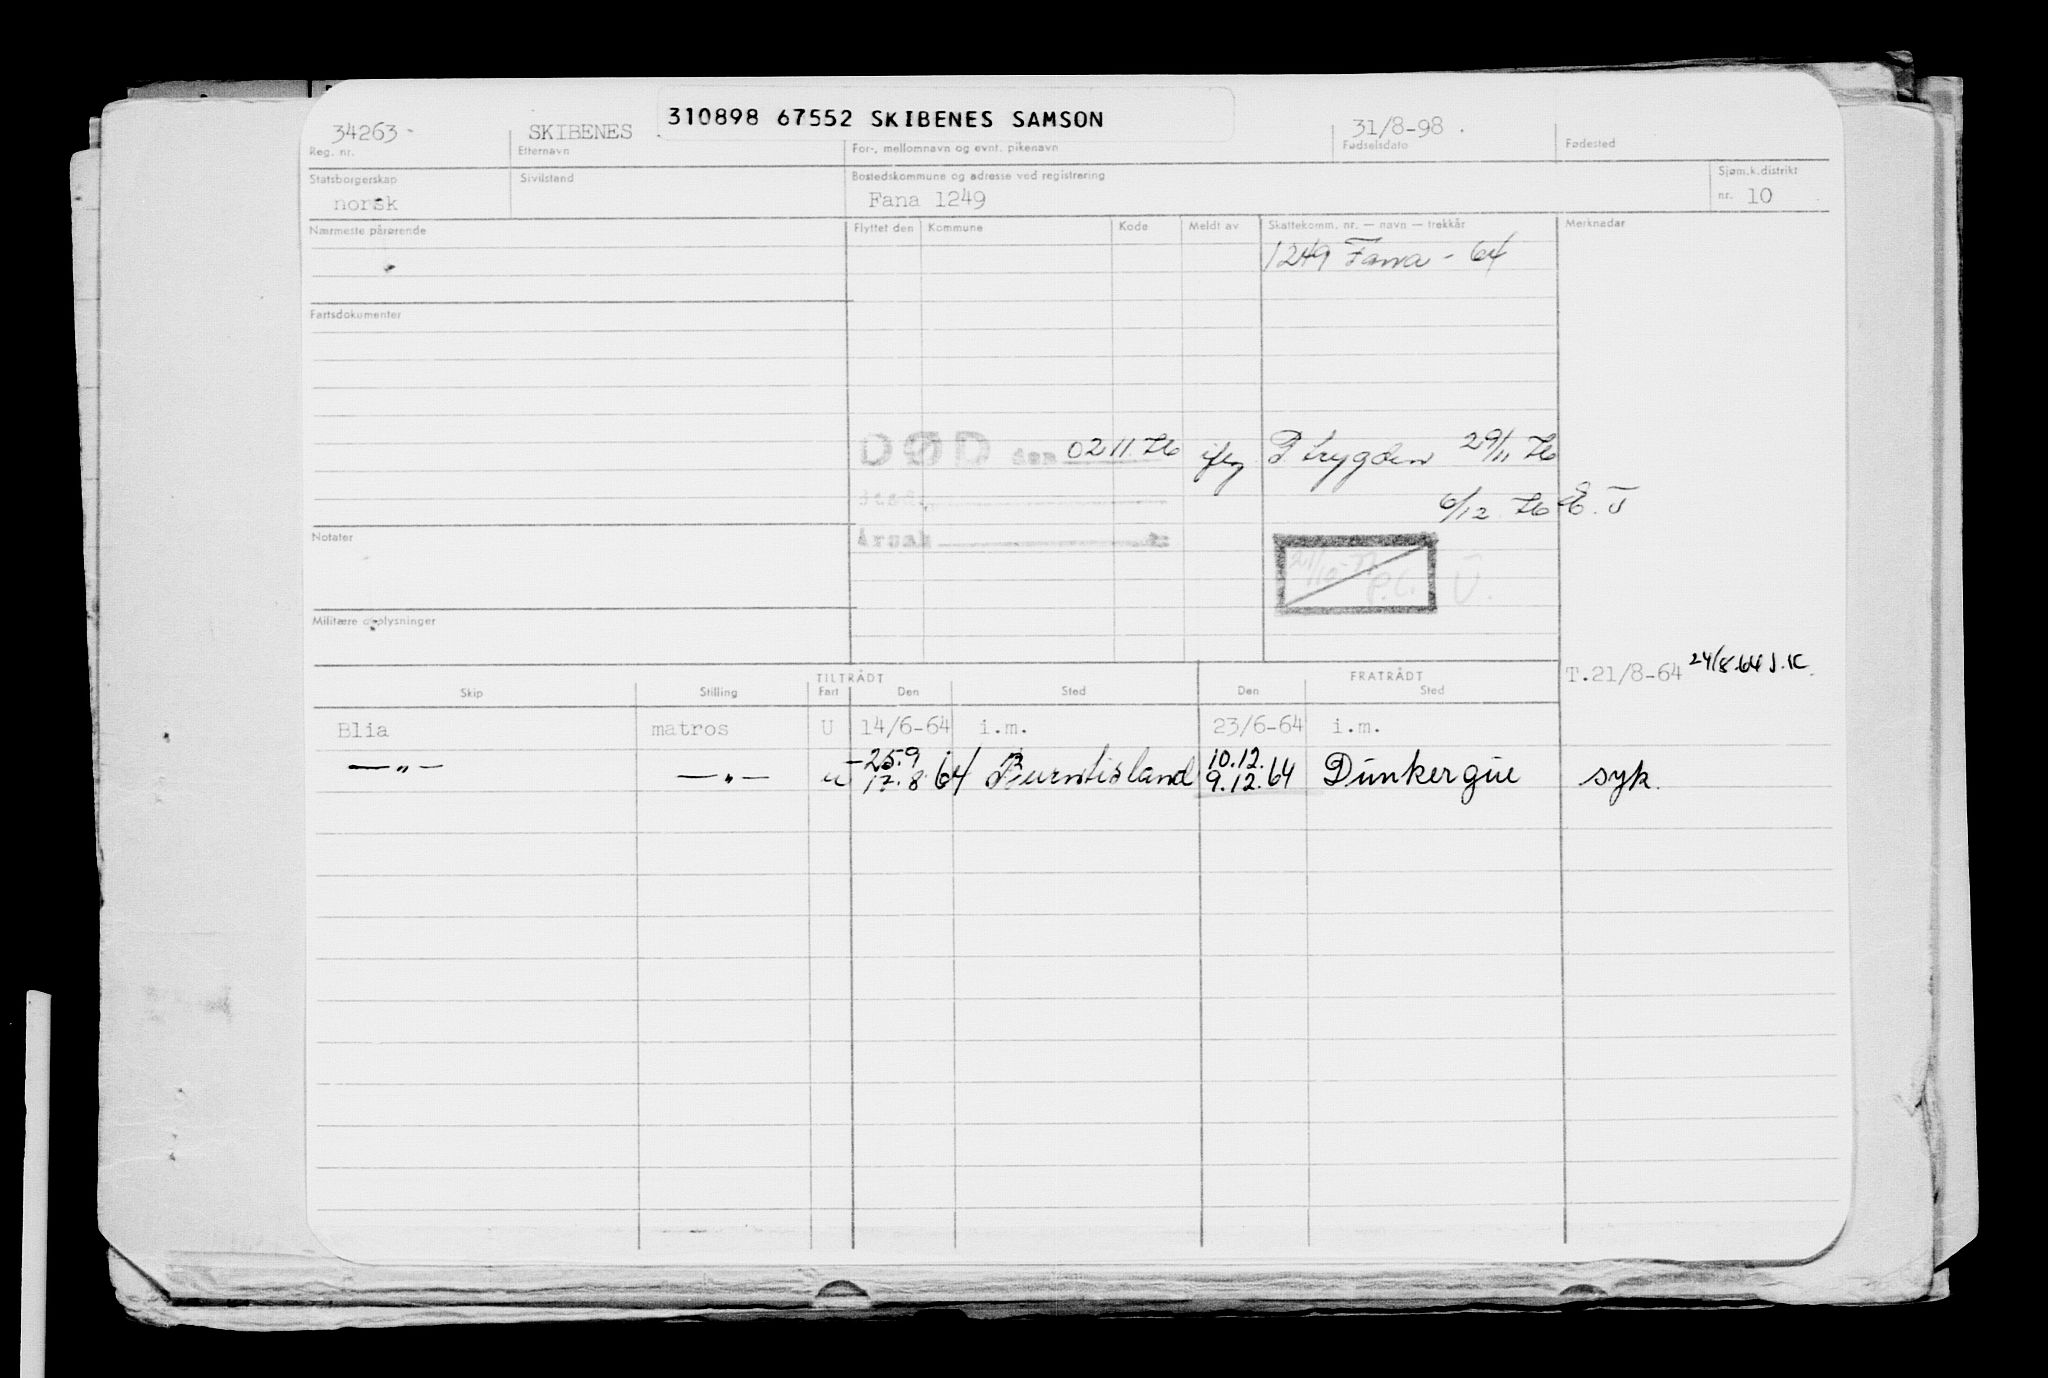 310898 67552 SKIBENES SAMSON
34263- SKIBENES 31/8-98.
Reg. nr. Etternavn For-, mellomnavn og evnt. pikenavn Fødselsdato Fødested
Statsborgerskap Sivilstand Bostedskommune og adresse ved registrering Sjøm.k.distrikt
norsk Fana 1249 nr. 10
Nærmeste pårørende Flyttet den Kommune Kode Meldt av Skattekomm. nr. — navn — trekkår Merknader
1249 Fana - 64
Fartsdokumenter
DØD den 02 11 76 iflg P. trygden 29/11 76
Sted
6/12 76 E. J
Notater Årsak
21/10-77 P.C. U.
Militære opplysninger
T.21/8-64 24/8.64 J.K.
TILTRÅDT FRATRÅDT
Skip Stilling Fart Den Sted Den Sted
Blia matros U 14/6-64 i.m. 23/6-64 i.m.
25.9 10.12.
—„— —„— u 17.8.64 Burntisland 9.12.64 Dunkerque syk.